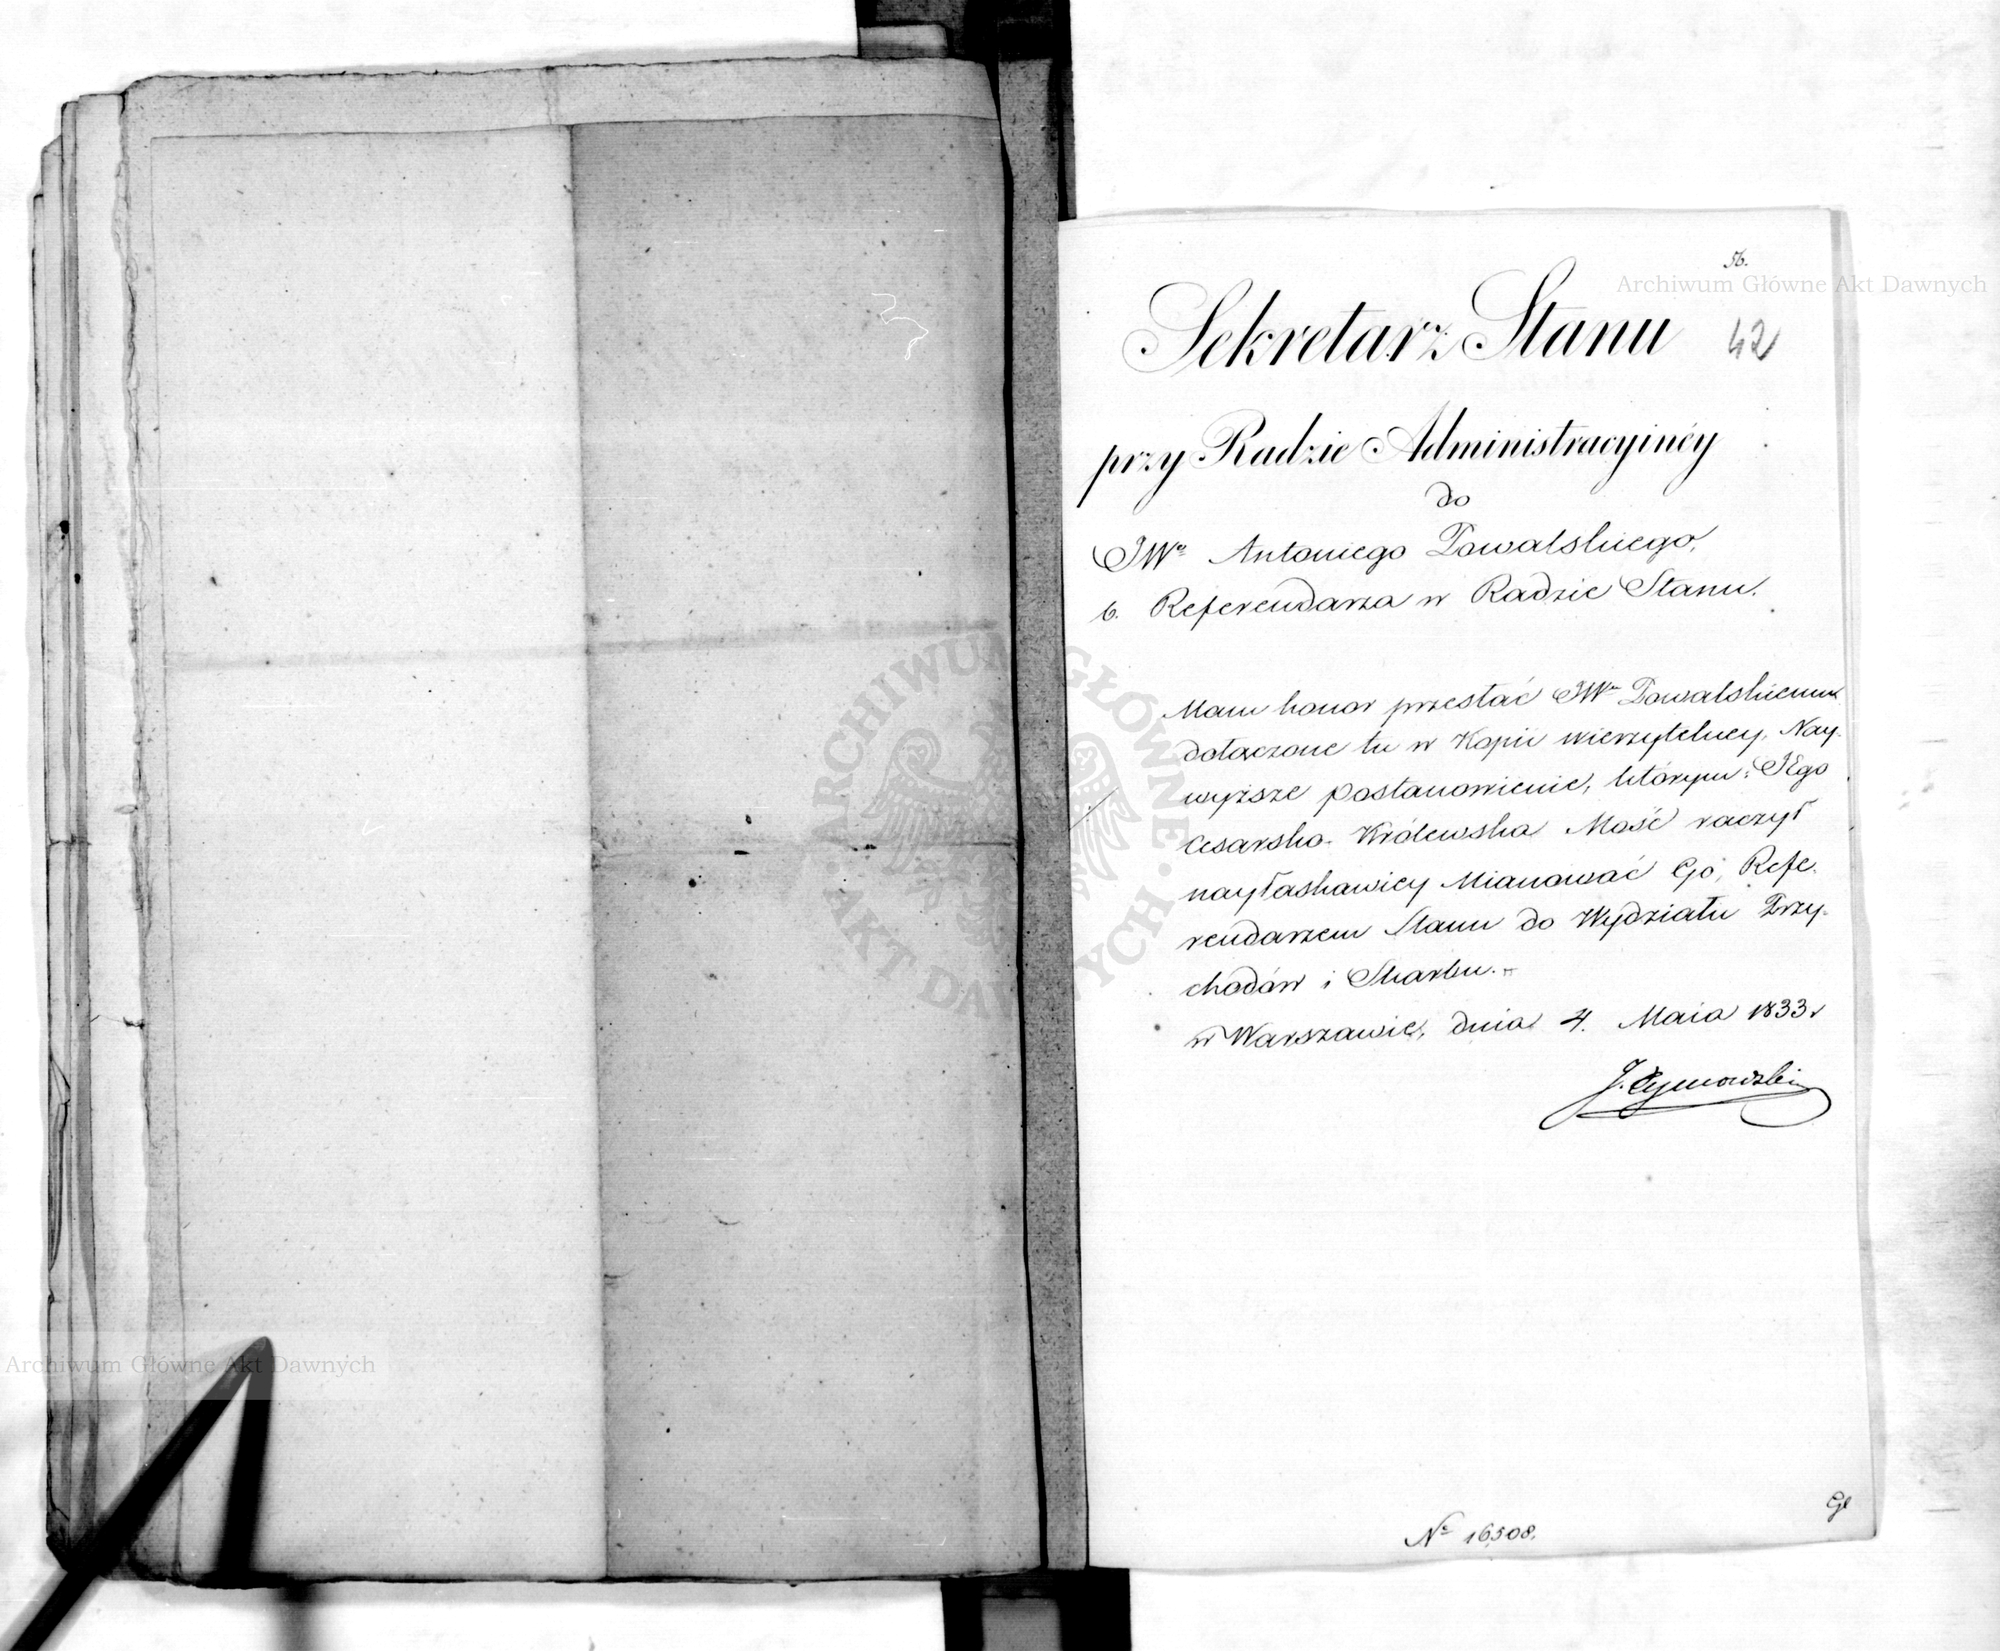 56.
Archiwum Główne Akt Dawnych
Sekretarz Stanu
42
przy Radzie Administracyinéy
do
JWo Antoniego Powalskiego,
b. Referendarza w Radzie Stanu.
Mam honor przesłać JWu Powalskiemu
dołączone tu w Kopii wierzytelney, Nay-
wyższe postanowienie, którym: JEgo
Cesarsko-Królewska Mość raczył
nayłaskawiey Mianować Go, Refe-
rendarzem Stanu do Wydziału Przy-
chodów i Skarbu.
w Warszawie, dnia 4. Maia 1833 r
J. Tymowski
No 16,508.
ARCHIWUM GŁÓWNE
AKT DAWNYCH
Archiwum Główne Akt Dawnych